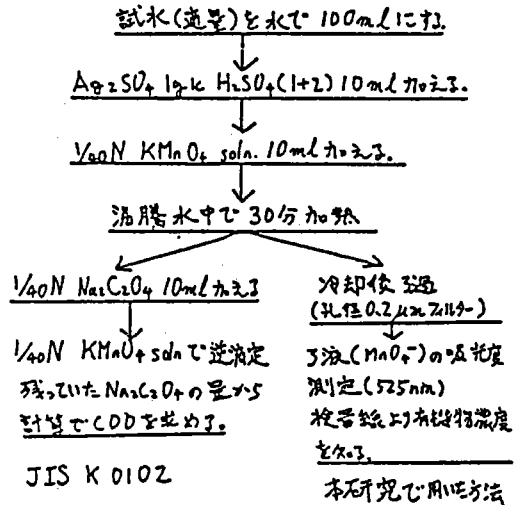 試水(適量)を水で100mlにする
Ag2SO4 1gk H2SO4(1+2) 10ml加える。
1/40N KMnO4 soln. 10ml加える。
沸騰水中で30分加熱
1/40N Na2C2O4 10ml加える
1/40N KMnO4 solnで逆滴定
残っていたNa2C2O4の量から
計算でCODを求める。
JIS K 0102
冷却後ろ過
(孔径0.2μmフィルター)
ろ液(MnO4-)の吸光度
測定(525nm)
検量線より有機物濃度
を知る。
本研究で用いた方法